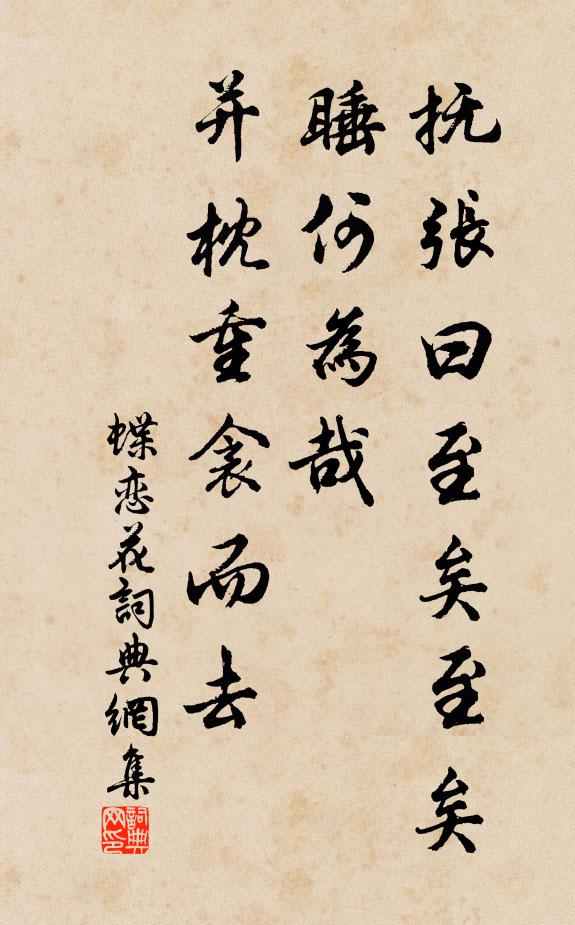 抚張曰至矣至矣
睡何為哉
并枕重衾而去
蝶恋花詞典網集
詞典网印